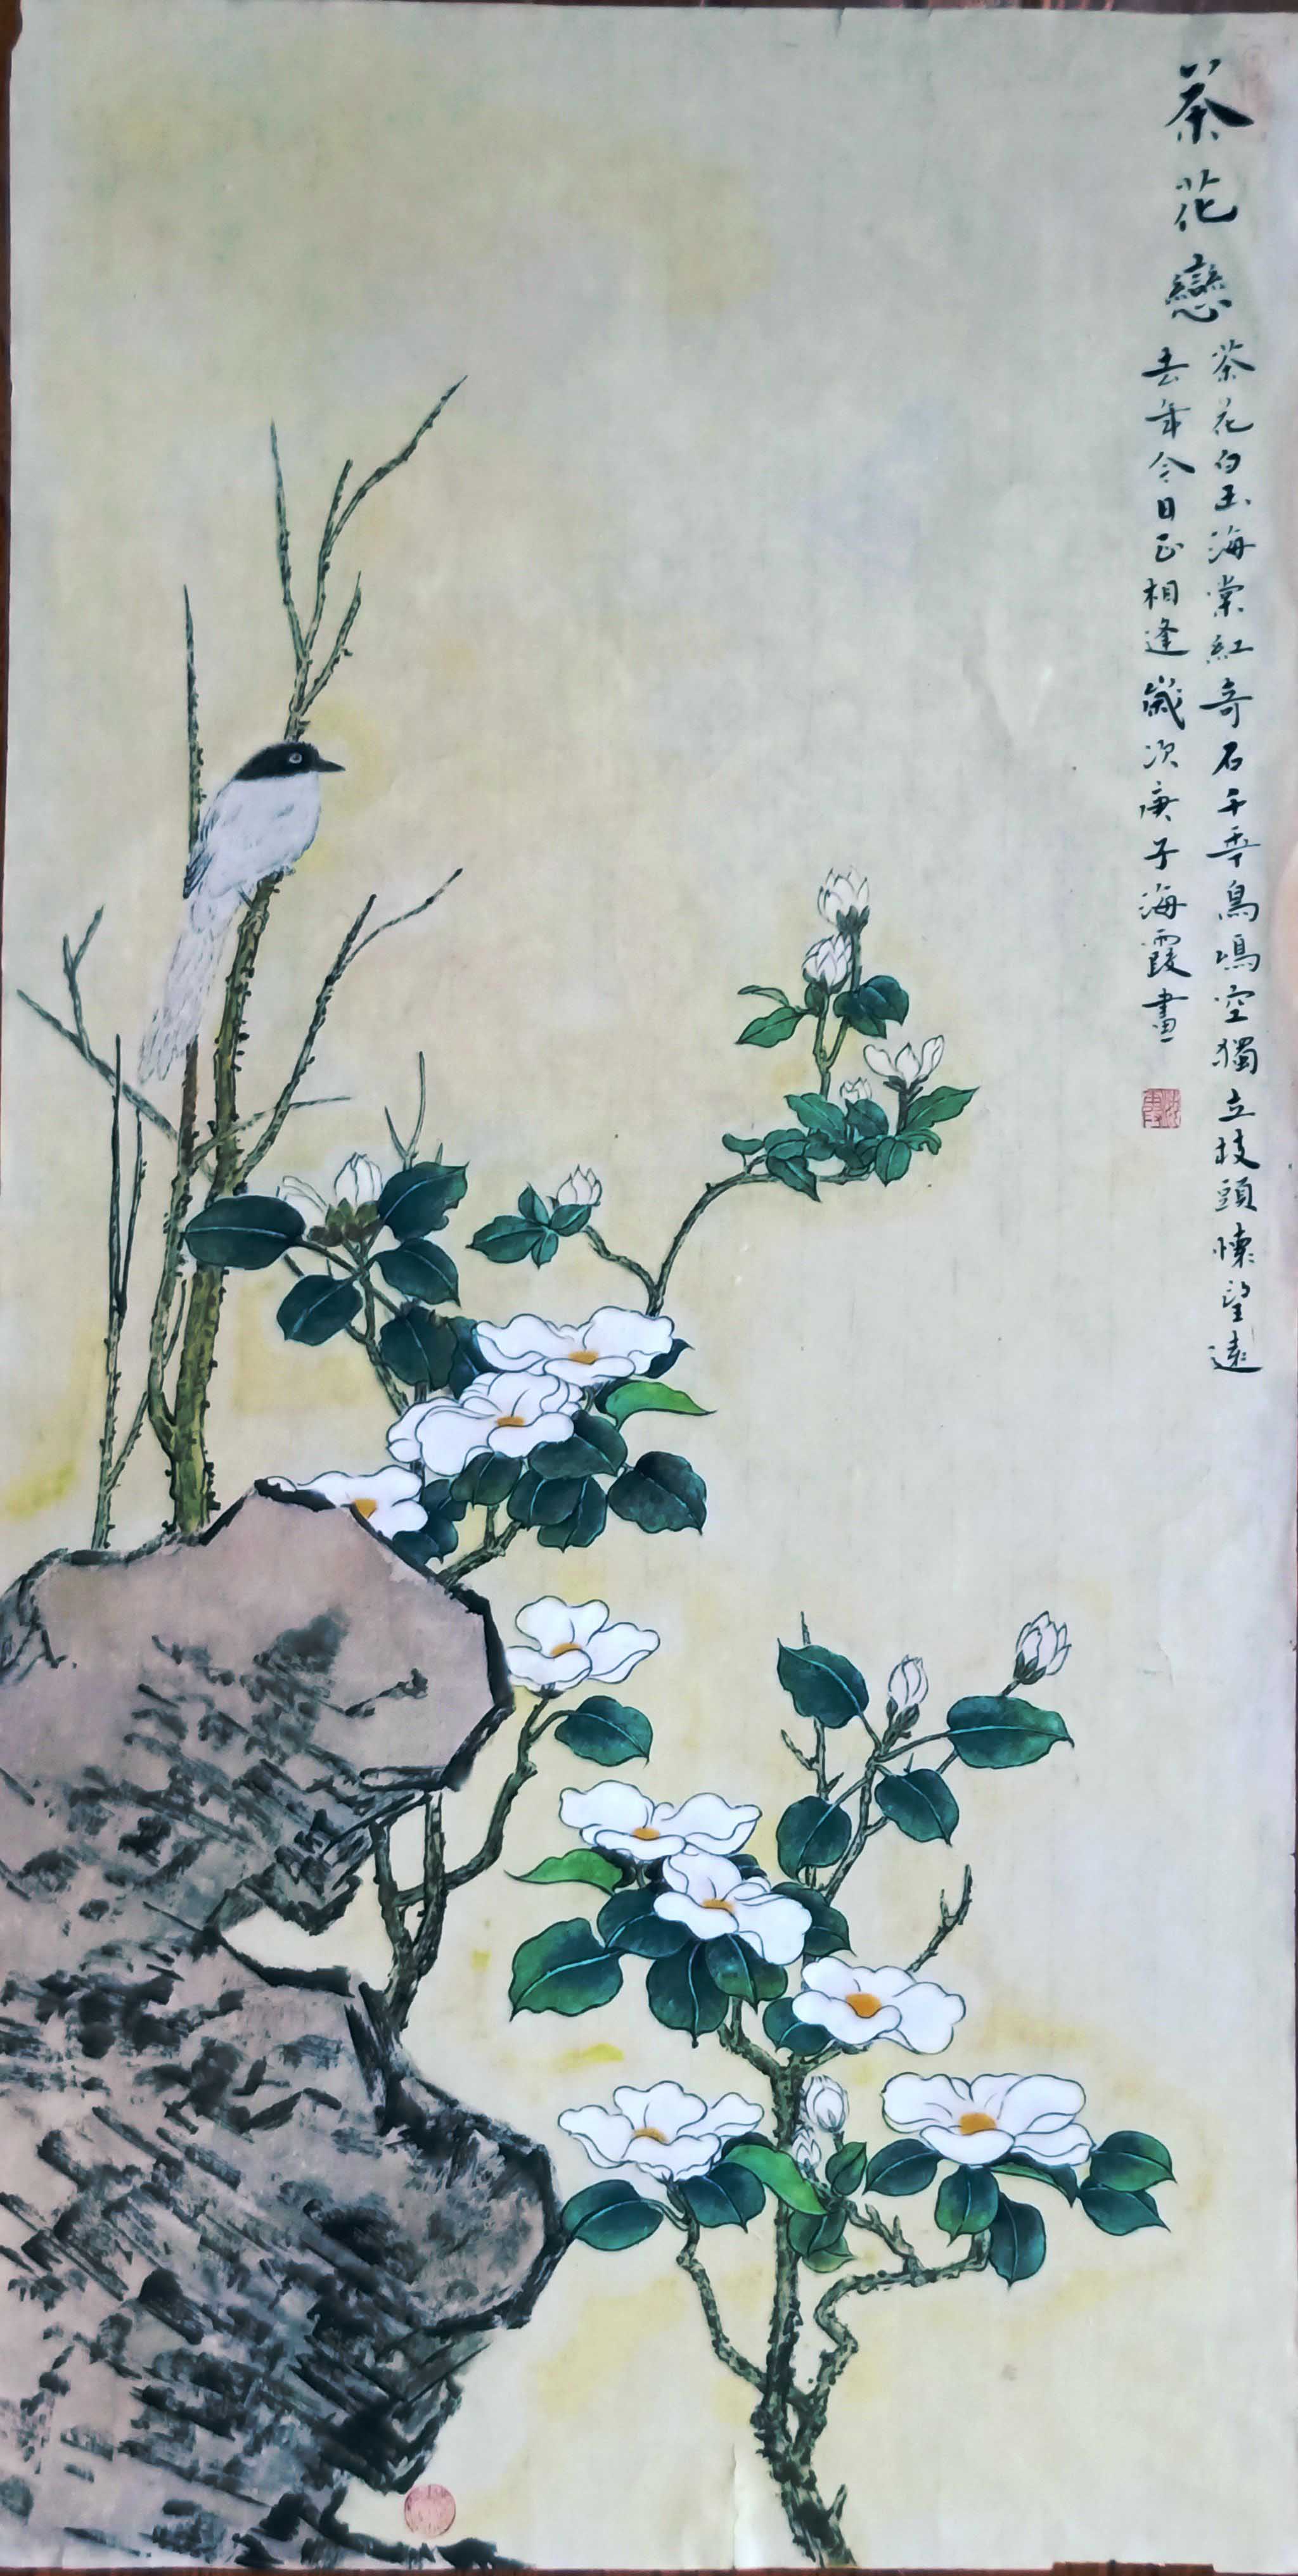 茶花戀
茶花白玉海棠紅奇石千季鳥鳴空獨立枝頭懷望遠
去年今日正相逢歲次庚子海霞畫
海霞